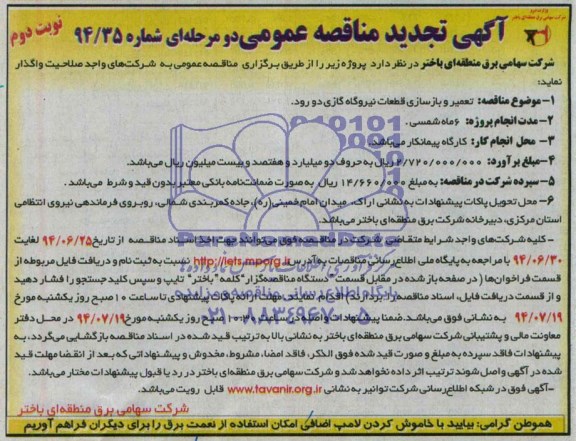 شرکت سهامی برق منطقه ای باختر
نوبت دوم
آگهی تجدید مناقصه عمومی دو مرحله ای شماره ۹۴/۳۵
شرکت سهامی برق منطقه ای باختر در نظر دارد پروژه زیر را از طریق برگزاری مناقصه عمومی به شرکت های واجد صلاحیت واگذار
نماید:
۱- موضوع مناقصه: تعمیر و بازسازی قطعات نیروگاه گازی دو رود.
۲- مدت انجام پروژه: ۶ ماه شمسی.
۳- محل انجام کار: کارگاه پیمانکار می باشد.
۴- مبلغ برآورد: ۲/۷۲۰/۰۰۰/۰۰۰ ریال به حروف دو میلیارد و هفتصد و بیست میلیون ریال می باشد.
۵- سپرده شرکت در مناقصه: به مبلغ ۱۳/۶۶۰/۰۰۰ ریال به صورت ضمانت نامه بانکی معتبر بدون قید و شرط می باشد.
۶- محل تحویل پاکات پیشنهادات به نشانی اراک، میدان امام خمینی (ره)، جاده کمربندی شمالی، روبروی فرماندهی نیروی انتظامی
استان مرکزی، دبیرخانه شرکت برق منطقه ای باختر می باشد.
- کلیه شرکت های واجد شرایط متقاضی شرکت در مناقصه فوق می توانند جهت اخذ اسناد مناقصه از تاریخ ۹۴/۰۶/۲۵ لغایت
۹۴/۰۶/۳۰ با مراجعه به پایگاه ملی اطلاع رسانی مناقصات به آدرس http://iets.mporg.ir نسبت به ثبت نام و دریافت فایل مربوطه از
قسمت فراخوان ها (در صفحه باز شده در مقابل قسمت "دستگاه مناقصه گزار" کلمه "باختر" تایپ و سپس کلید جستجو را فشار دهید
و از قسمت دریافت فایل، اسناد مناقصه را بردارند) اقدام نمایند. مهلت ارائه پاکات پیشنهادی تا ساعت ۱۰ صبح روز یکشنبه مورخ
۹۴/۰۷/۱۹ به نشانی فوق می باشد. ضمنا پیشنهادات واصله در ساعت ۱۰:۳۰ صبح روز یکشنبه مورخ ۹۴/۰۷/۱۹ در محل دفتر
معاونت مالی و پشتیبانی شرکت سهامی برق منطقه ای باختر به نشانی بالا به ترتیب قید شده در اسناد مناقصه بازگشایی می گردد. به
پیشنهادات فاقد سپرده به مبلغ و صورت قید شده فوق الذکر، فاقد امضا، مشروط، مخدوش و پیشنهاداتی که بعد از انقضا مهلت قید
شده در آگهی واصل شوند ترتیب اثر داده نخواهد شد و شرکت سهامی برق منطقه ای باختر در رد یا قبول پیشنهادات مختار می باشد.
- آگهی فوق در شبکه اطلاع رسانی شرکت توانیر به نشانی www.tavanir.org.ir قابل رویت می باشد.
شرکت سهامی برق منطقه ای باختر
هموطن گرامی: بیایید با خاموش کردن لامپ اضافی امکان استفاده از نعمت برق را برای دیگران فراهم آوریم